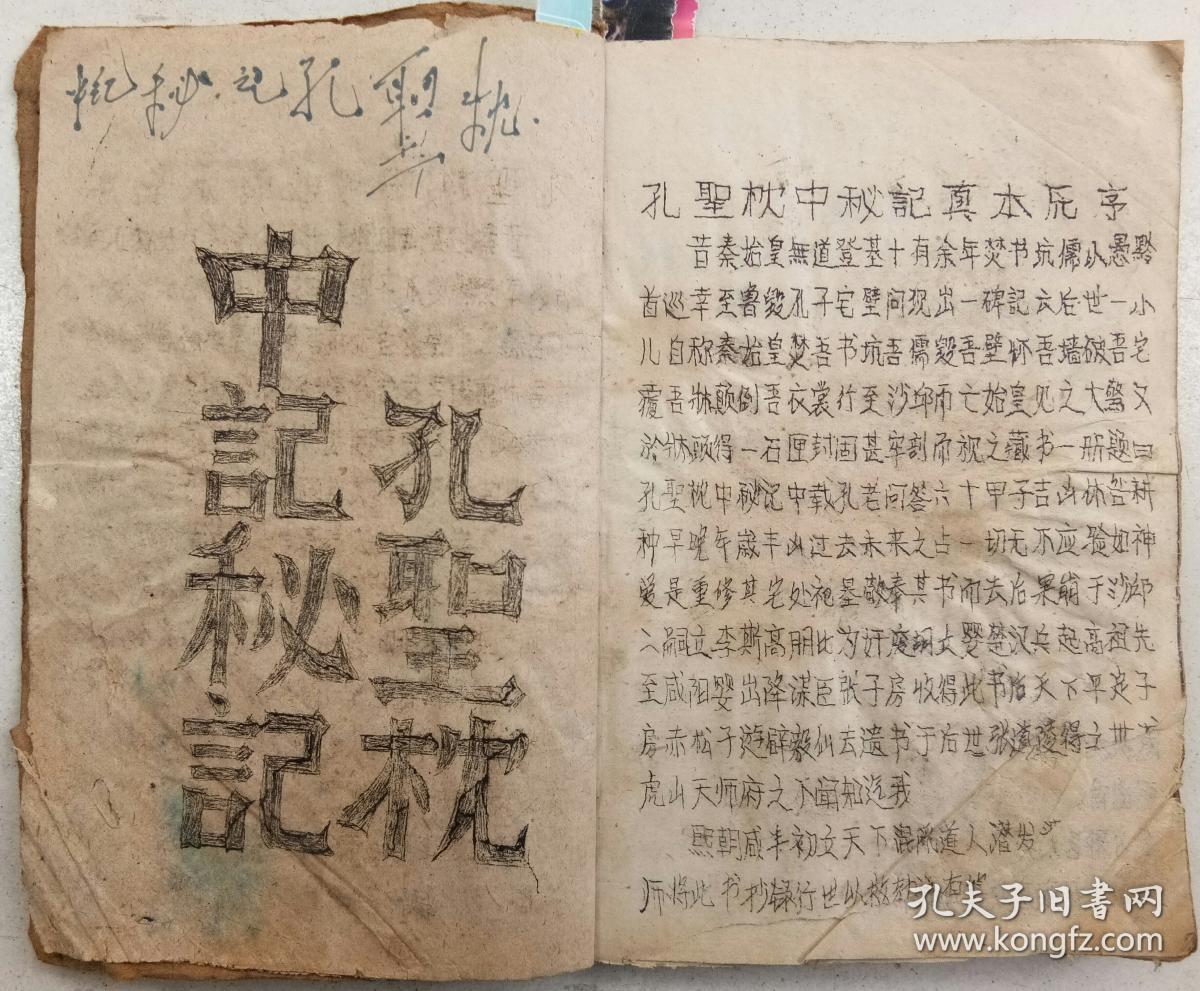 秘 记 孔 聖 枕
孔聖枕
中記秘記
孔聖枕中秘記真本原序
昔秦始皇無道登基十有余年焚书坑儒以愚黔
首巡幸至魯毁孔子宅壁间现出一碑記云后世一小
儿自称秦始皇焚吾书坑吾儒毁吾壁怀吾墙破吾宅
吾牀颠倒吾衣裳行至沙邱而亡始皇见之大驚又
於牀頭得一石匣封固甚牢剖而视之藏书一册题曰
孔聖枕中秘记中载孔老问答六十甲子吉凶休咎耕
种早晚年歳丰凶过去未来之占一切无不应验如神
爰是重修其宅处祀墓敬奉其书而去后果崩于沙邱
二嗣立李斯高朋比汐奸楚汉兵起高祖先
至咸阳婴出降谋臣张子房收得此书治天下早定子
房赤松子遊辟穀仙去遗书于后世张道陵得之世
虎山天师府之不闻知迄我
熙朝咸丰初立天下混乱道人潜发
师将此书抄録行世以救
孔夫子旧书网
www.kongfz.com